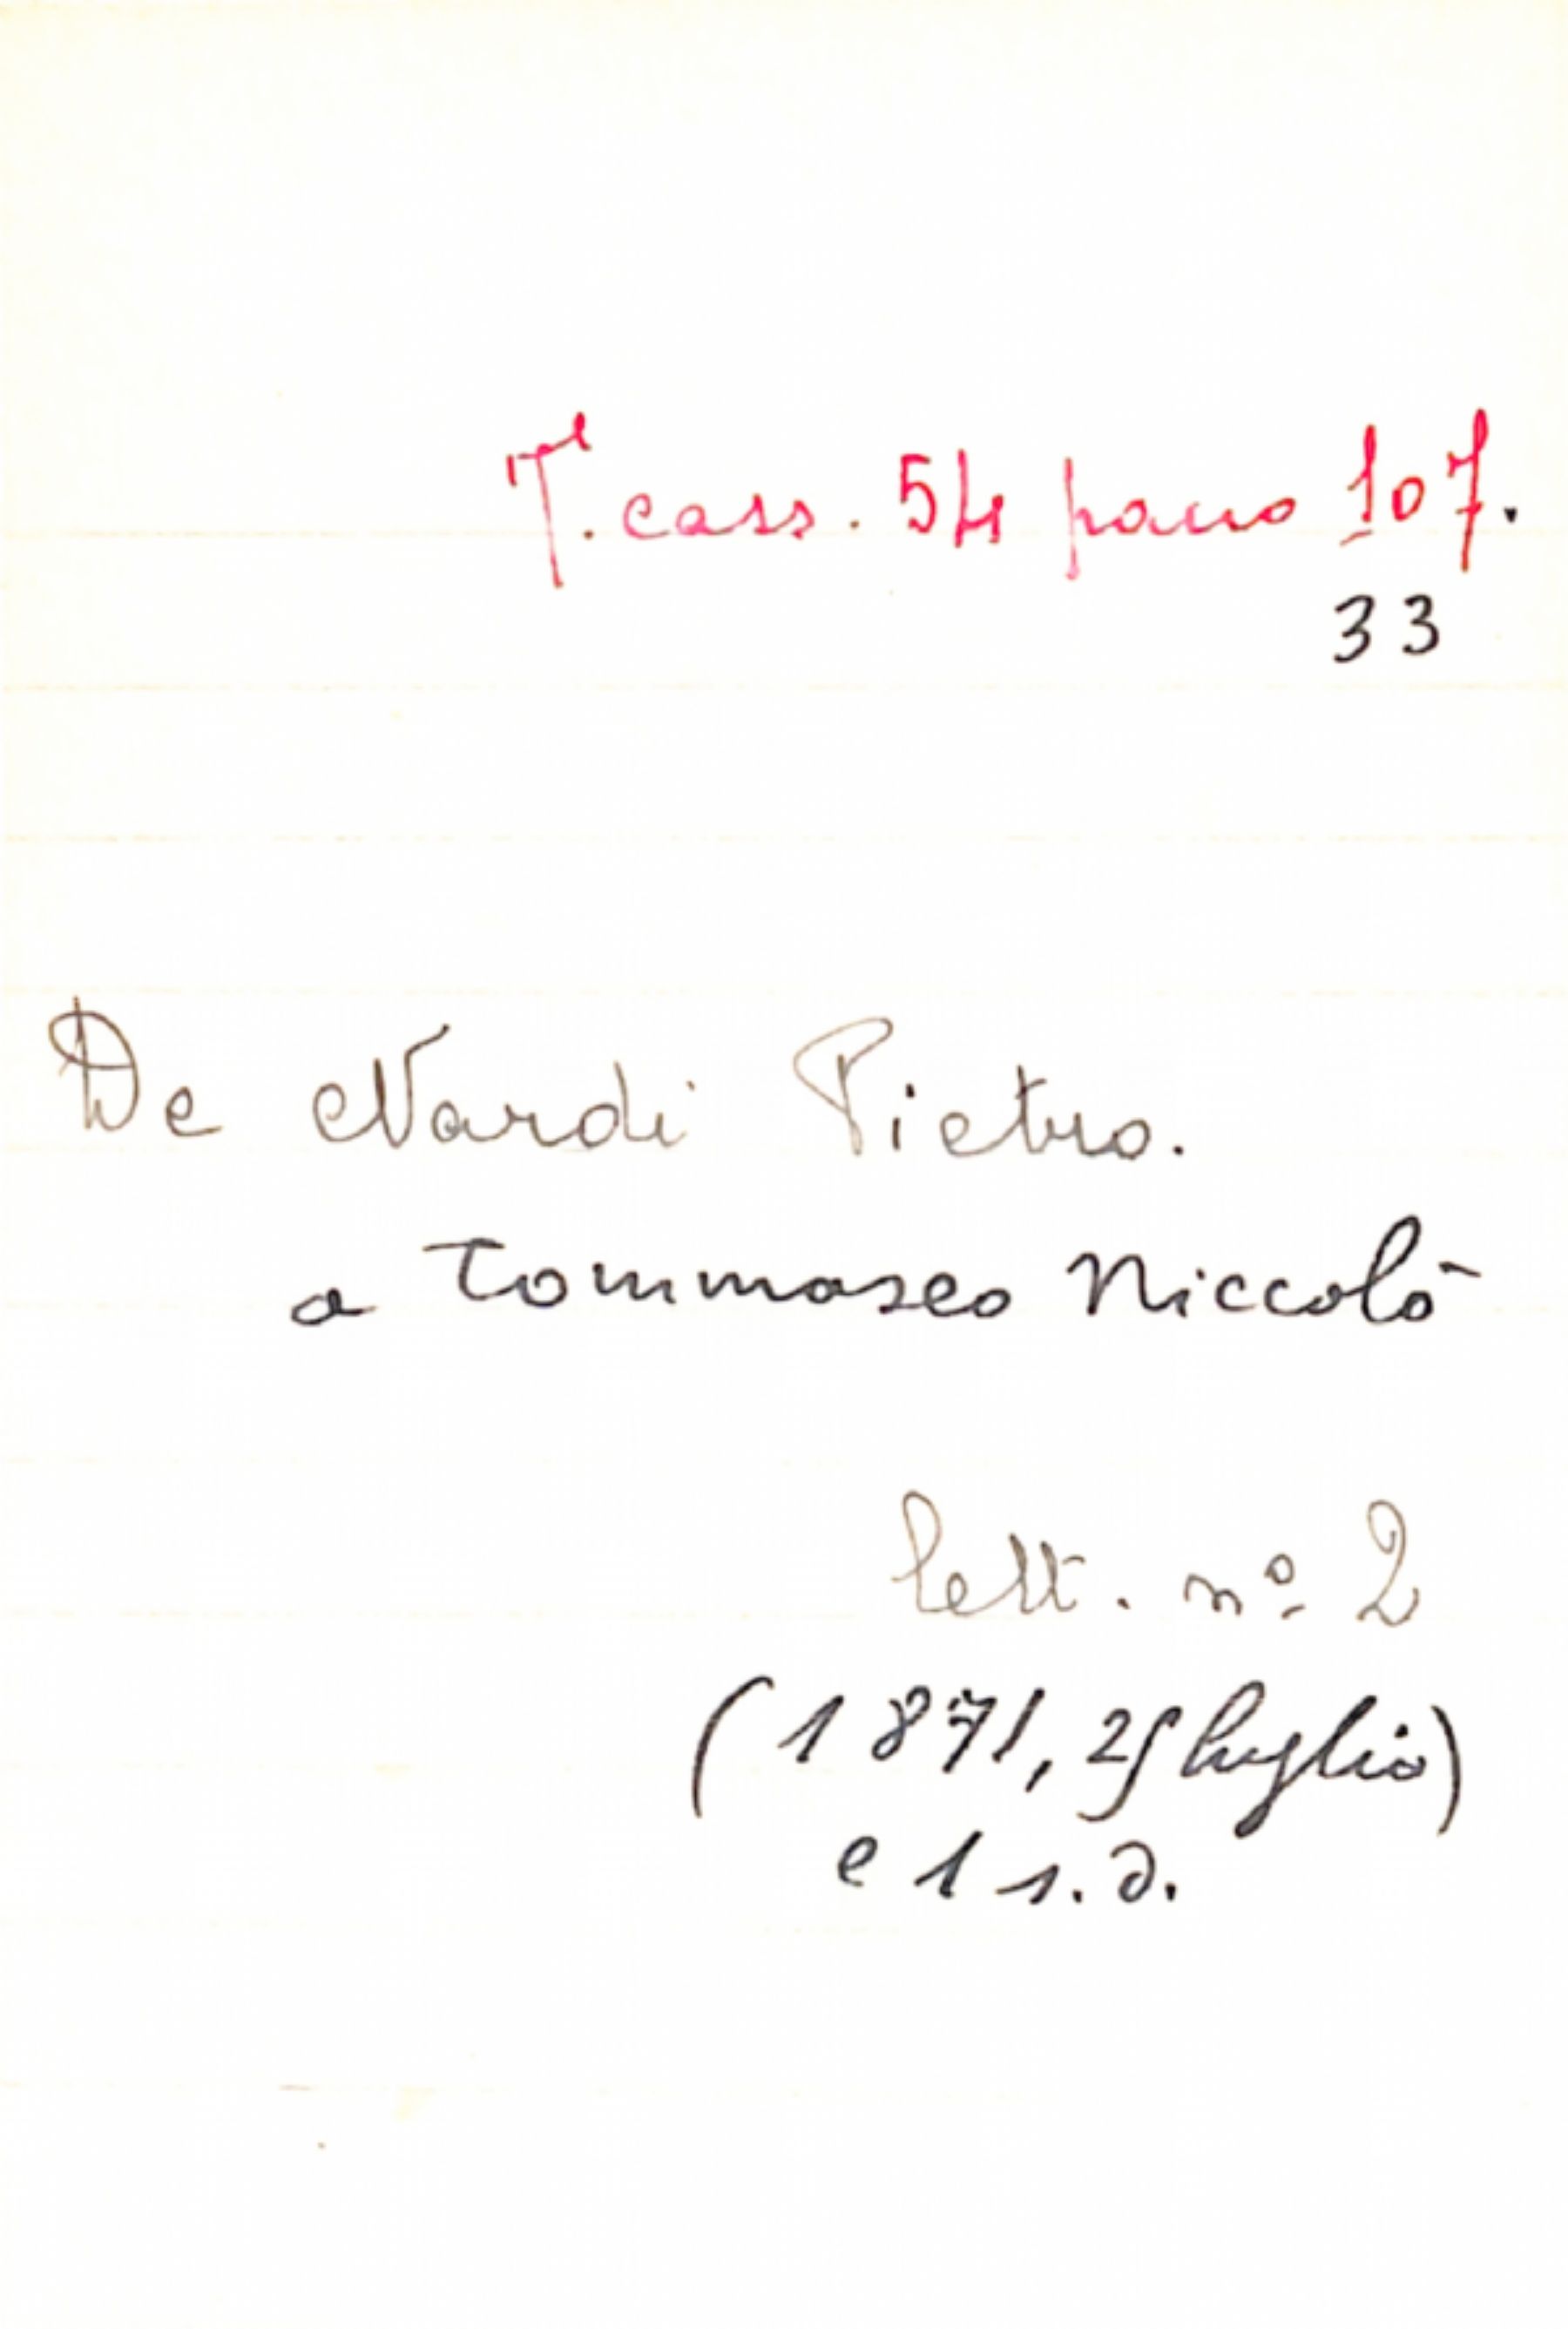 T. cass. 54 pacco 107.
33
De Nardi Pietro.
a Tommaseo Niccolò
lett. nº 2
(1871, 25 luglio)
e 1 s.d.